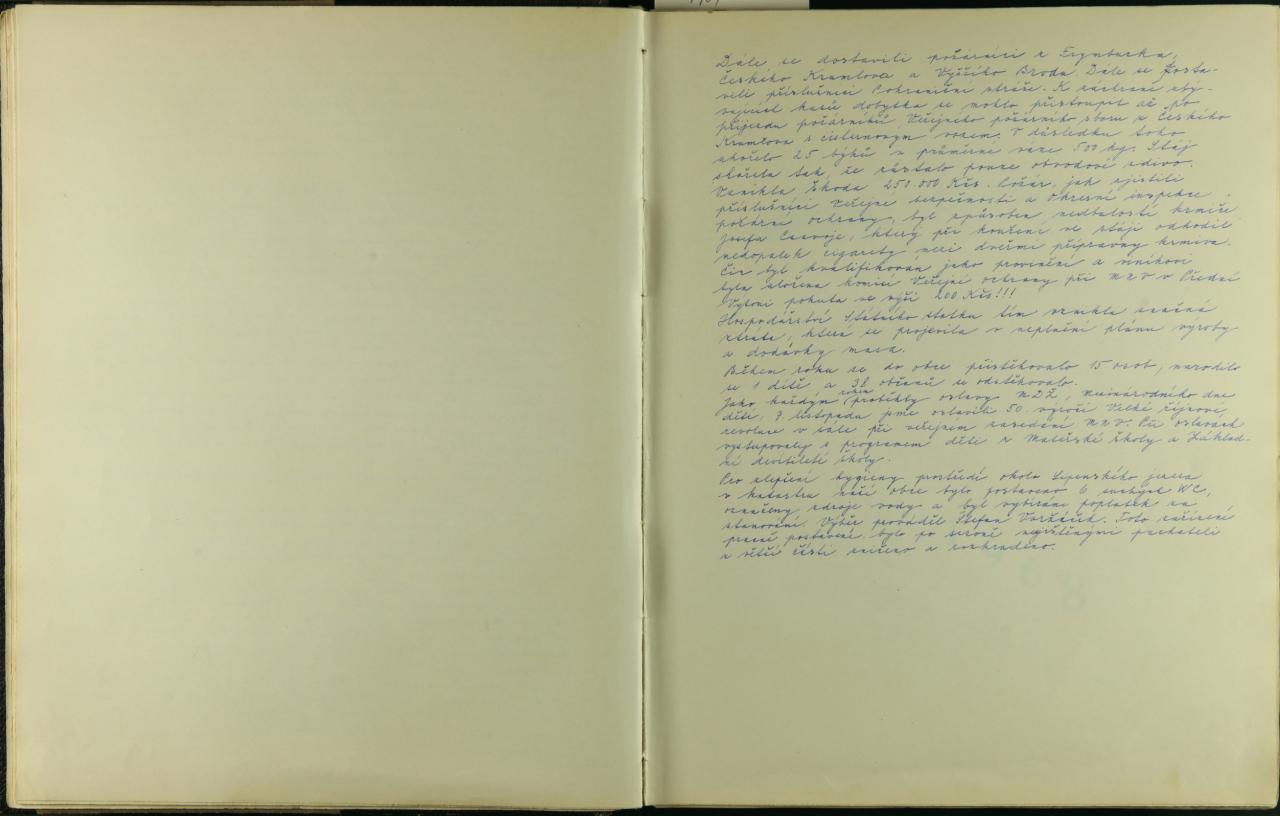 Dále se dostavili požárníci z Frymburka,
Českého Krumlova a Vyššího Brodu. Dále se posta-
vili příslušníci Pohraniční stráže. K záchraně zbý-
vajících kusů dobytka se mohlo přistoupit až po
příjezdu požárníků Veřejného požárního sboru z Českého
Krumlova s cisternovým vozem. V důsledku toho
uhořelo 25 býků v průměrné váze 500 kg. Stáj
shořela tak, že zůstalo pouze obvodové zdivo.
Vznikla škoda 250.000 Kčs. Požár, jak zjistili
příslušníci Veřejné bezpečnosti a Okresní inspekce
požární ochrany, byl způsoben nedbalostí krmiče
Josefa, který při kouření ve stáji odhodil
nedopalek cigarety mezi dveřmi přípravny krmiva.
Čin byl kvalifikován jako provinění a viníkovi
byla uložena komisí Veřejné ochrany při MNV v Přední
Výtoni pokuta ve výši 200 Kčs!!!
Hospodářství Státního statku tím vznikla značná
ztráta, která se projevila v neplnění plánu výroby
a dodávky masa.
Během roku se do obce přistěhovalo 15 osob, narodilo
se 1 dítě a 38 občanů se odstěhovalo.
Jako každým rokem proběhly oslavy MDŽ, Mezinárodního dne
dětí, 7. listopadu jsme oslavili 50. výročí Velké říjnové
revoluce v sále při veřejném zasedání MNV. Při oslavách
vystupovaly s programem děti z Mateřské školy a Základ-
ní devítileté školy.
Pro zlepšení hygieny prostředí okolo Lipenského jezera
v katastru naší obce bylo postaveno 6 suchých WC,
označeny zdroje vody a byl vybírán poplatek za
stanování. Výběr prováděl Štefan. Toto zařízení
pracně postavené, bylo po sezoně nezjištěnými pachateli
z větší části zničeno a rozkradeno.